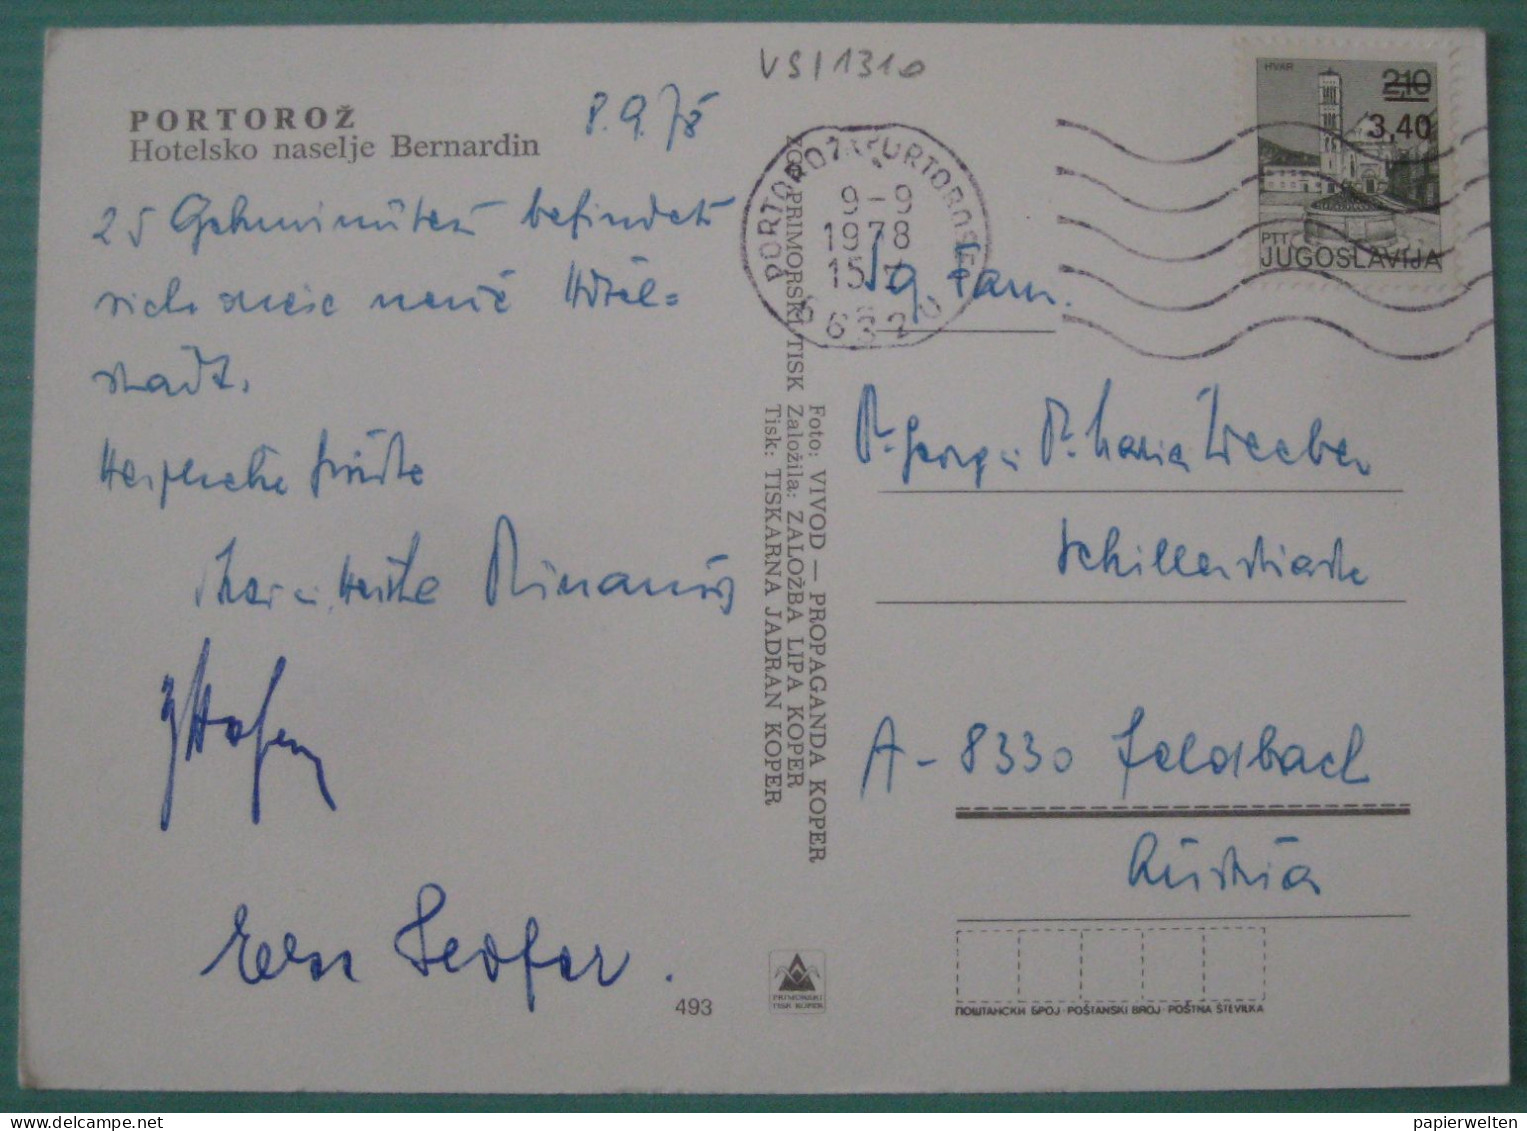 VSI1310
PORTOROŽ
Hotelsko naselje Bernardin
8.9.78
25 Gehminuten befindet
sich diese neue Hotel=
stadt.
Herzliche Grüße
Herta
Hofer
PORTOROŽ PORTOROSE
9-9
1978
15
6632
HVAR
2,10
3,40
PTT
JUGOSLAVIJA
Foto: VIVOD — PROPAGANDA KOPER
Založila: ZALOŽBA LIPA KOPER
Tisk: TISKARNA JADRAN KOPER
PRIMORSKI TISK
Sg. Fam.
Dr. Georg u. Dr. Maria
Schillerstraße
A-8330 Feldbach
Austria
493
PRIMORSKI
TISK KOPER
ПОШТАНСКИ БРОЈ · POŠTANSKI BROJ · POŠTNA ŠTEVILKA
papierwelten